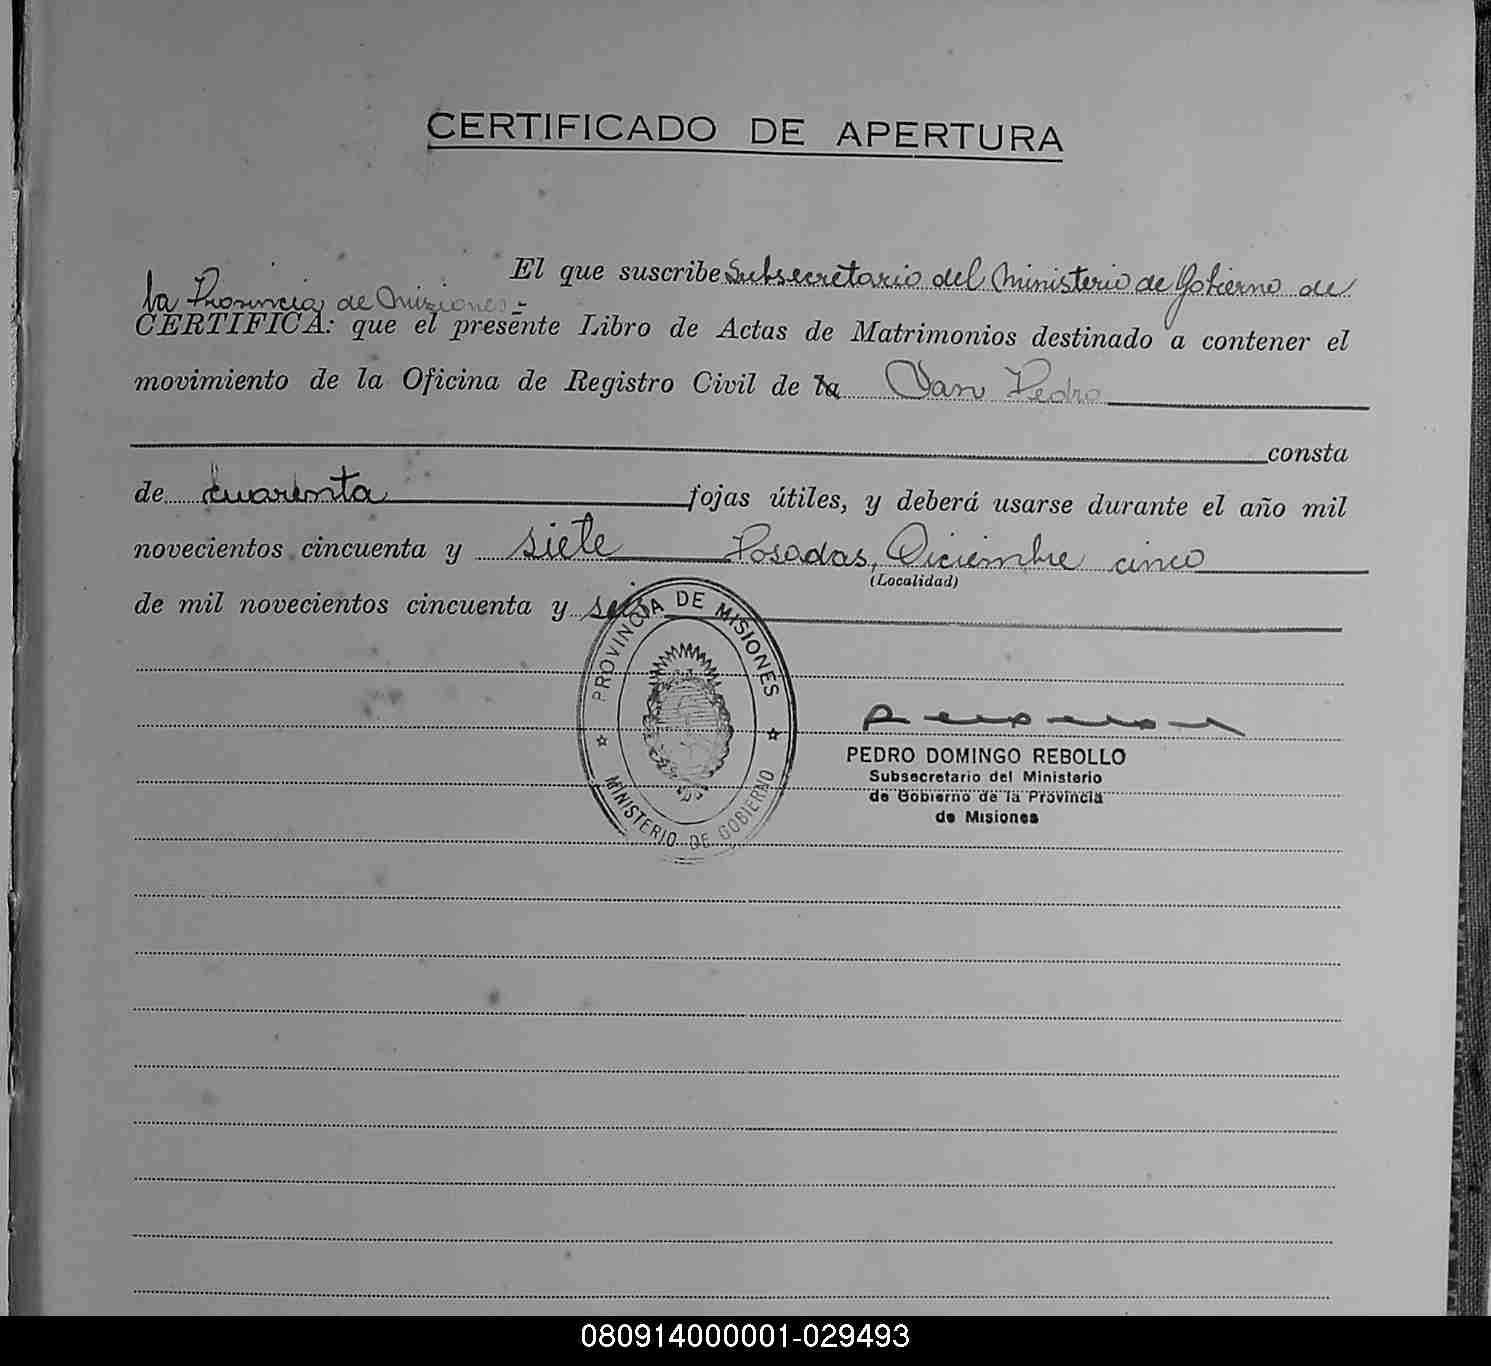 CERTIFICADO DE APERTURA
El que suscribe Subsecretario del Ministerio de Gobierno de
la Provincia de Misiones.-
CERTIFICA: que el presente Libro de Actas de Matrimonios destinado a contener el
movimiento de la Oficina de Registro Civil de la San Pedro
consta
de cuarenta fojas útiles, y deberá usarse durante el año mil
novecientos cincuenta y siete Posadas, Diciembre cinco
(Localidad)
de mil novecientos cincuenta y seis
PROVINCIA DE MISIONES
MINISTERIO DE GOBIERNO
PEDRO DOMINGO REBOLLO
Subsecretario del Ministerio
de Gobierno de la Provincia
de Misiones
080914000001-029493